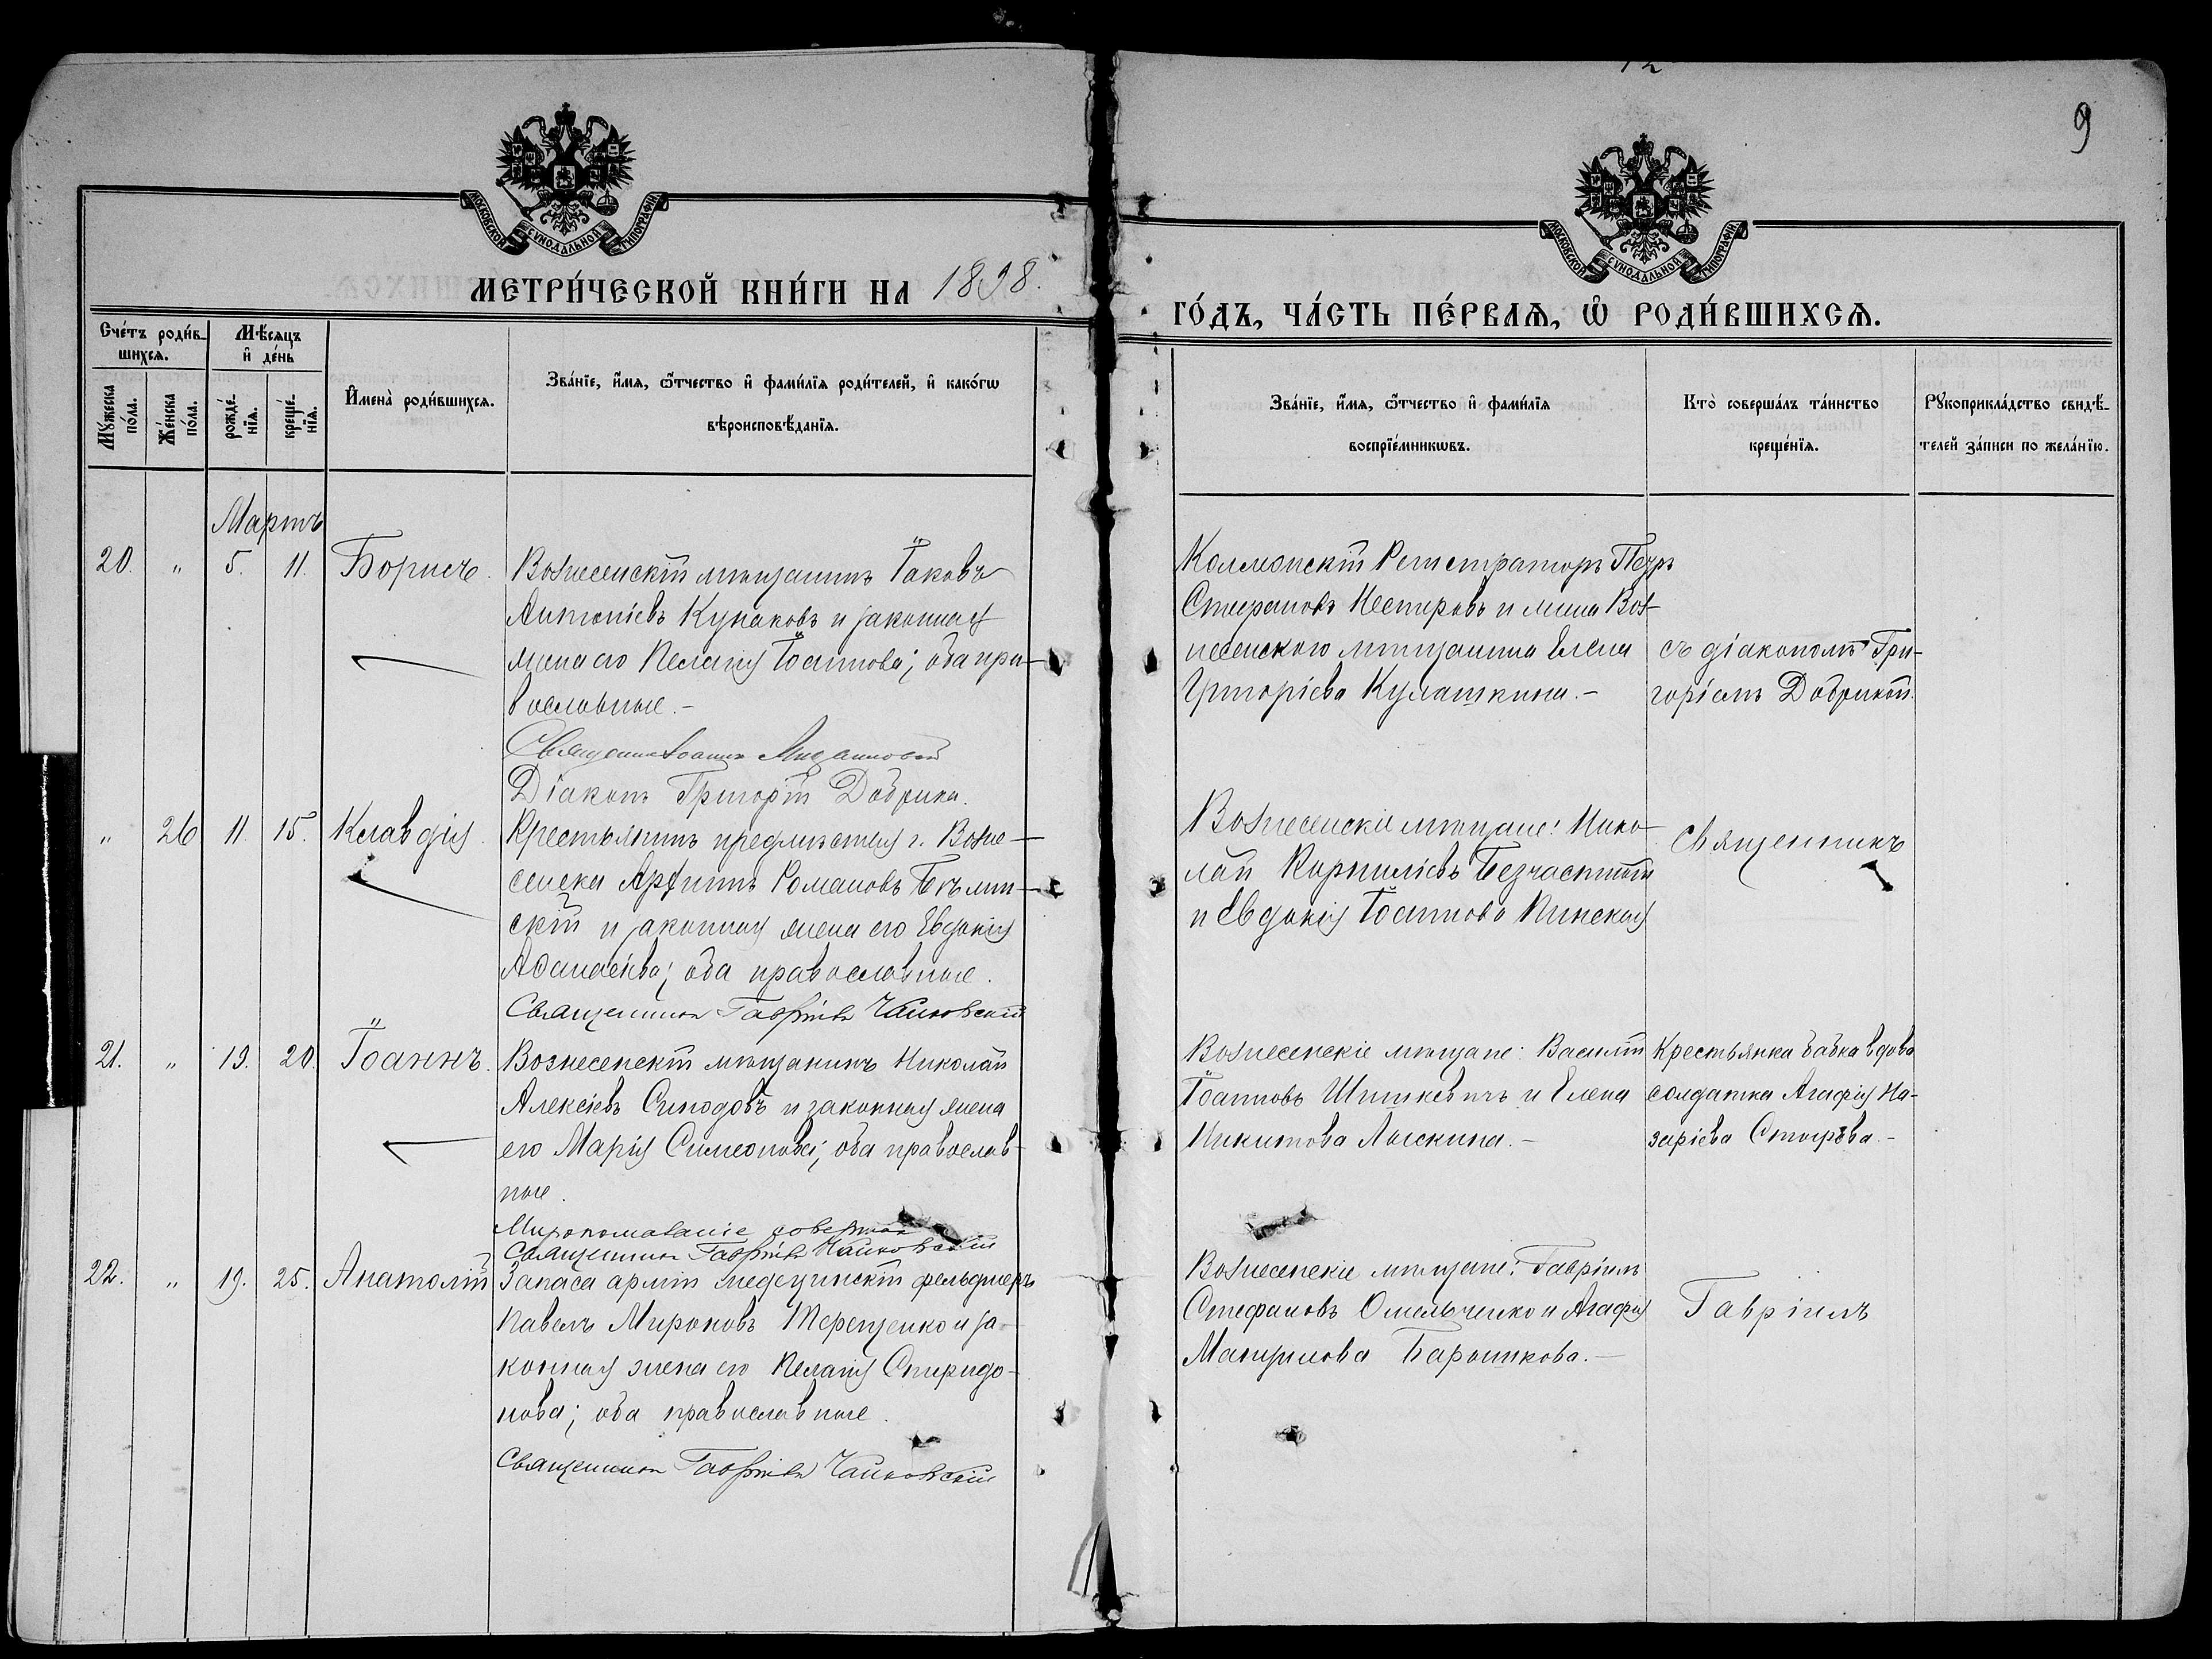 9
МОСКОВСКОЙ СѴНОДАЛЬНОЙ ТИПОГРАФІИ
МОСКОВСКОЙ СѴНОДАЛЬНОЙ ТИПОГРАФІИ
МЕТРИ́ЧЕСКОЙ КНИ́ГИ НА 1898.
ГО́ДЪ, ЧА́СТЬ ПЕ́РВАѦ, Ѡ҆ РОДИ́ВШИХСѦ.
Сче́тъ роди́в-
шихсѧ.
Мѣ́сѧцъ
и҆ де́нь
Мꙋ́жеска
по́ла.
Же́нска
по́ла.
рожде́-
нїѧ.
креще́-
нїѧ.
И҆мена̀ роди́вшихсѧ.
Зва́нїе, и҆́мѧ, ѻ҆́тчество и҆ фами́лїѧ роди́телей, и҆ како́гѡ
вѣроисповѣ́данїѧ.
Зва́нїе, и҆́мѧ, ѻ҆́тчество и҆ фами́лїѧ
воспрїе́мникѡвъ.
Кто̀ соверша́лъ та́инство
креще́нїѧ.
Рꙋкоприкла́дство свидѣ́-
телей за́писи по жела́нїю.
Мартъ
20. " 5. 11. Борисъ.
Вознесенскій мѣщанинъ Іаковъ
Антоніевъ Кунаковъ и законная
жена его Пелагія Іоаннова; оба пра-
вославные. -
Священник Іоаннъ
Діаконъ Григорій Добрика.
Коллежскій Регистраторъ Петръ
Стефановъ Нестеровъ и жена Воз-
несенскаго мѣщанина Елена
Григоріева Кулашкина. -
съ діакономъ Гри-
горіемъ Добрикой.
" 26 11 15. Клавдія.
Крестьянинъ предмѣстья г. Возне-
сенска Архипъ Романовъ
и законная жена его Евдокія
Аѳанасіева; оба православные.
Священникъ Гавріилъ Чайковскій
Вознесенскіе мѣщане: Нико-
лай Корниліевъ Безчастный
и Евдокія Іоаннова Пинская
Священникъ
21. " 13. 20. Іоаннъ.
Вознесенскій мѣщанинъ Николай
Алексіевъ Синодовъ и законная жена
его Марія Симеонова; оба православ-
ные.
Миропомазаніе совершилъ
Священникъ Гавріилъ Чайковскій
Вознесенскіе мѣщане: Василій
Іоанновъ Шишкевичъ и Елена
Никитова Лыскина. -
Крестьянка бабка вдова
солдатка Агафія На-
заріева
22. " 19. 25. Анатолій
Запаса арміи медецинскій фельдшеръ
Павелъ Мироновъ Терещенко и за-
конная жена его Пелагія Спиридо-
нова; оба православные.
Священникъ Гавріилъ Чайковскій
Вознесенскіе мѣщане: Гавріилъ
Стефановъ Омельченко и Агафія
Барышкова. -
Гавріилъ